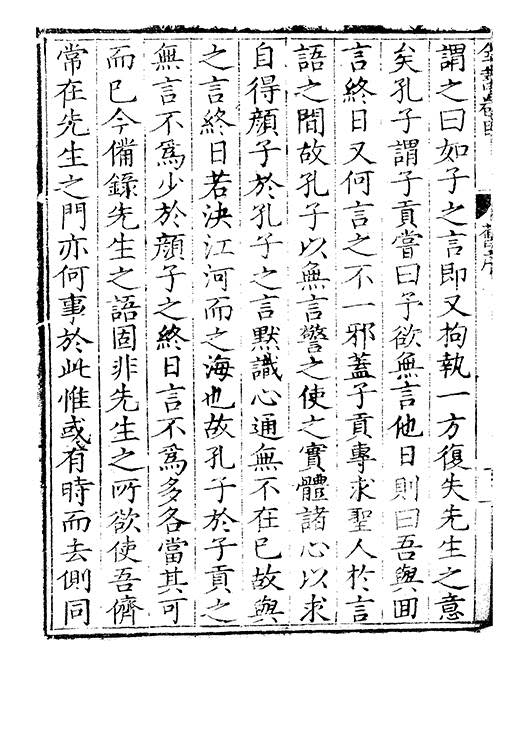 謂之曰如子之言即又拘執一方復失先生之意
矣孔子謂子貢嘗曰予欲無言他日則曰吾與回
言終日又何言之不一邪蓋子貢專求聖人於言
語之間故孔子以無言警之使之實體諸心以求
自得顔子於孔子之言默識心通無不在已故與
之言終日若決江河而之海也故孔子於子貢之
無言不爲少於顔子之終日言不爲多各當其可
而已今備錄先生之語固非先生之所欲使吾儕
常在先生之門亦何事於此惟或有時而去側同